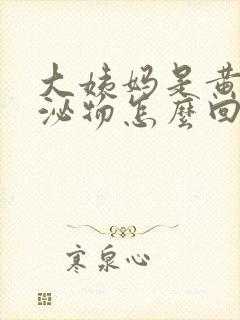 大姨妈是黄
泌物怎麽回
寒泉心